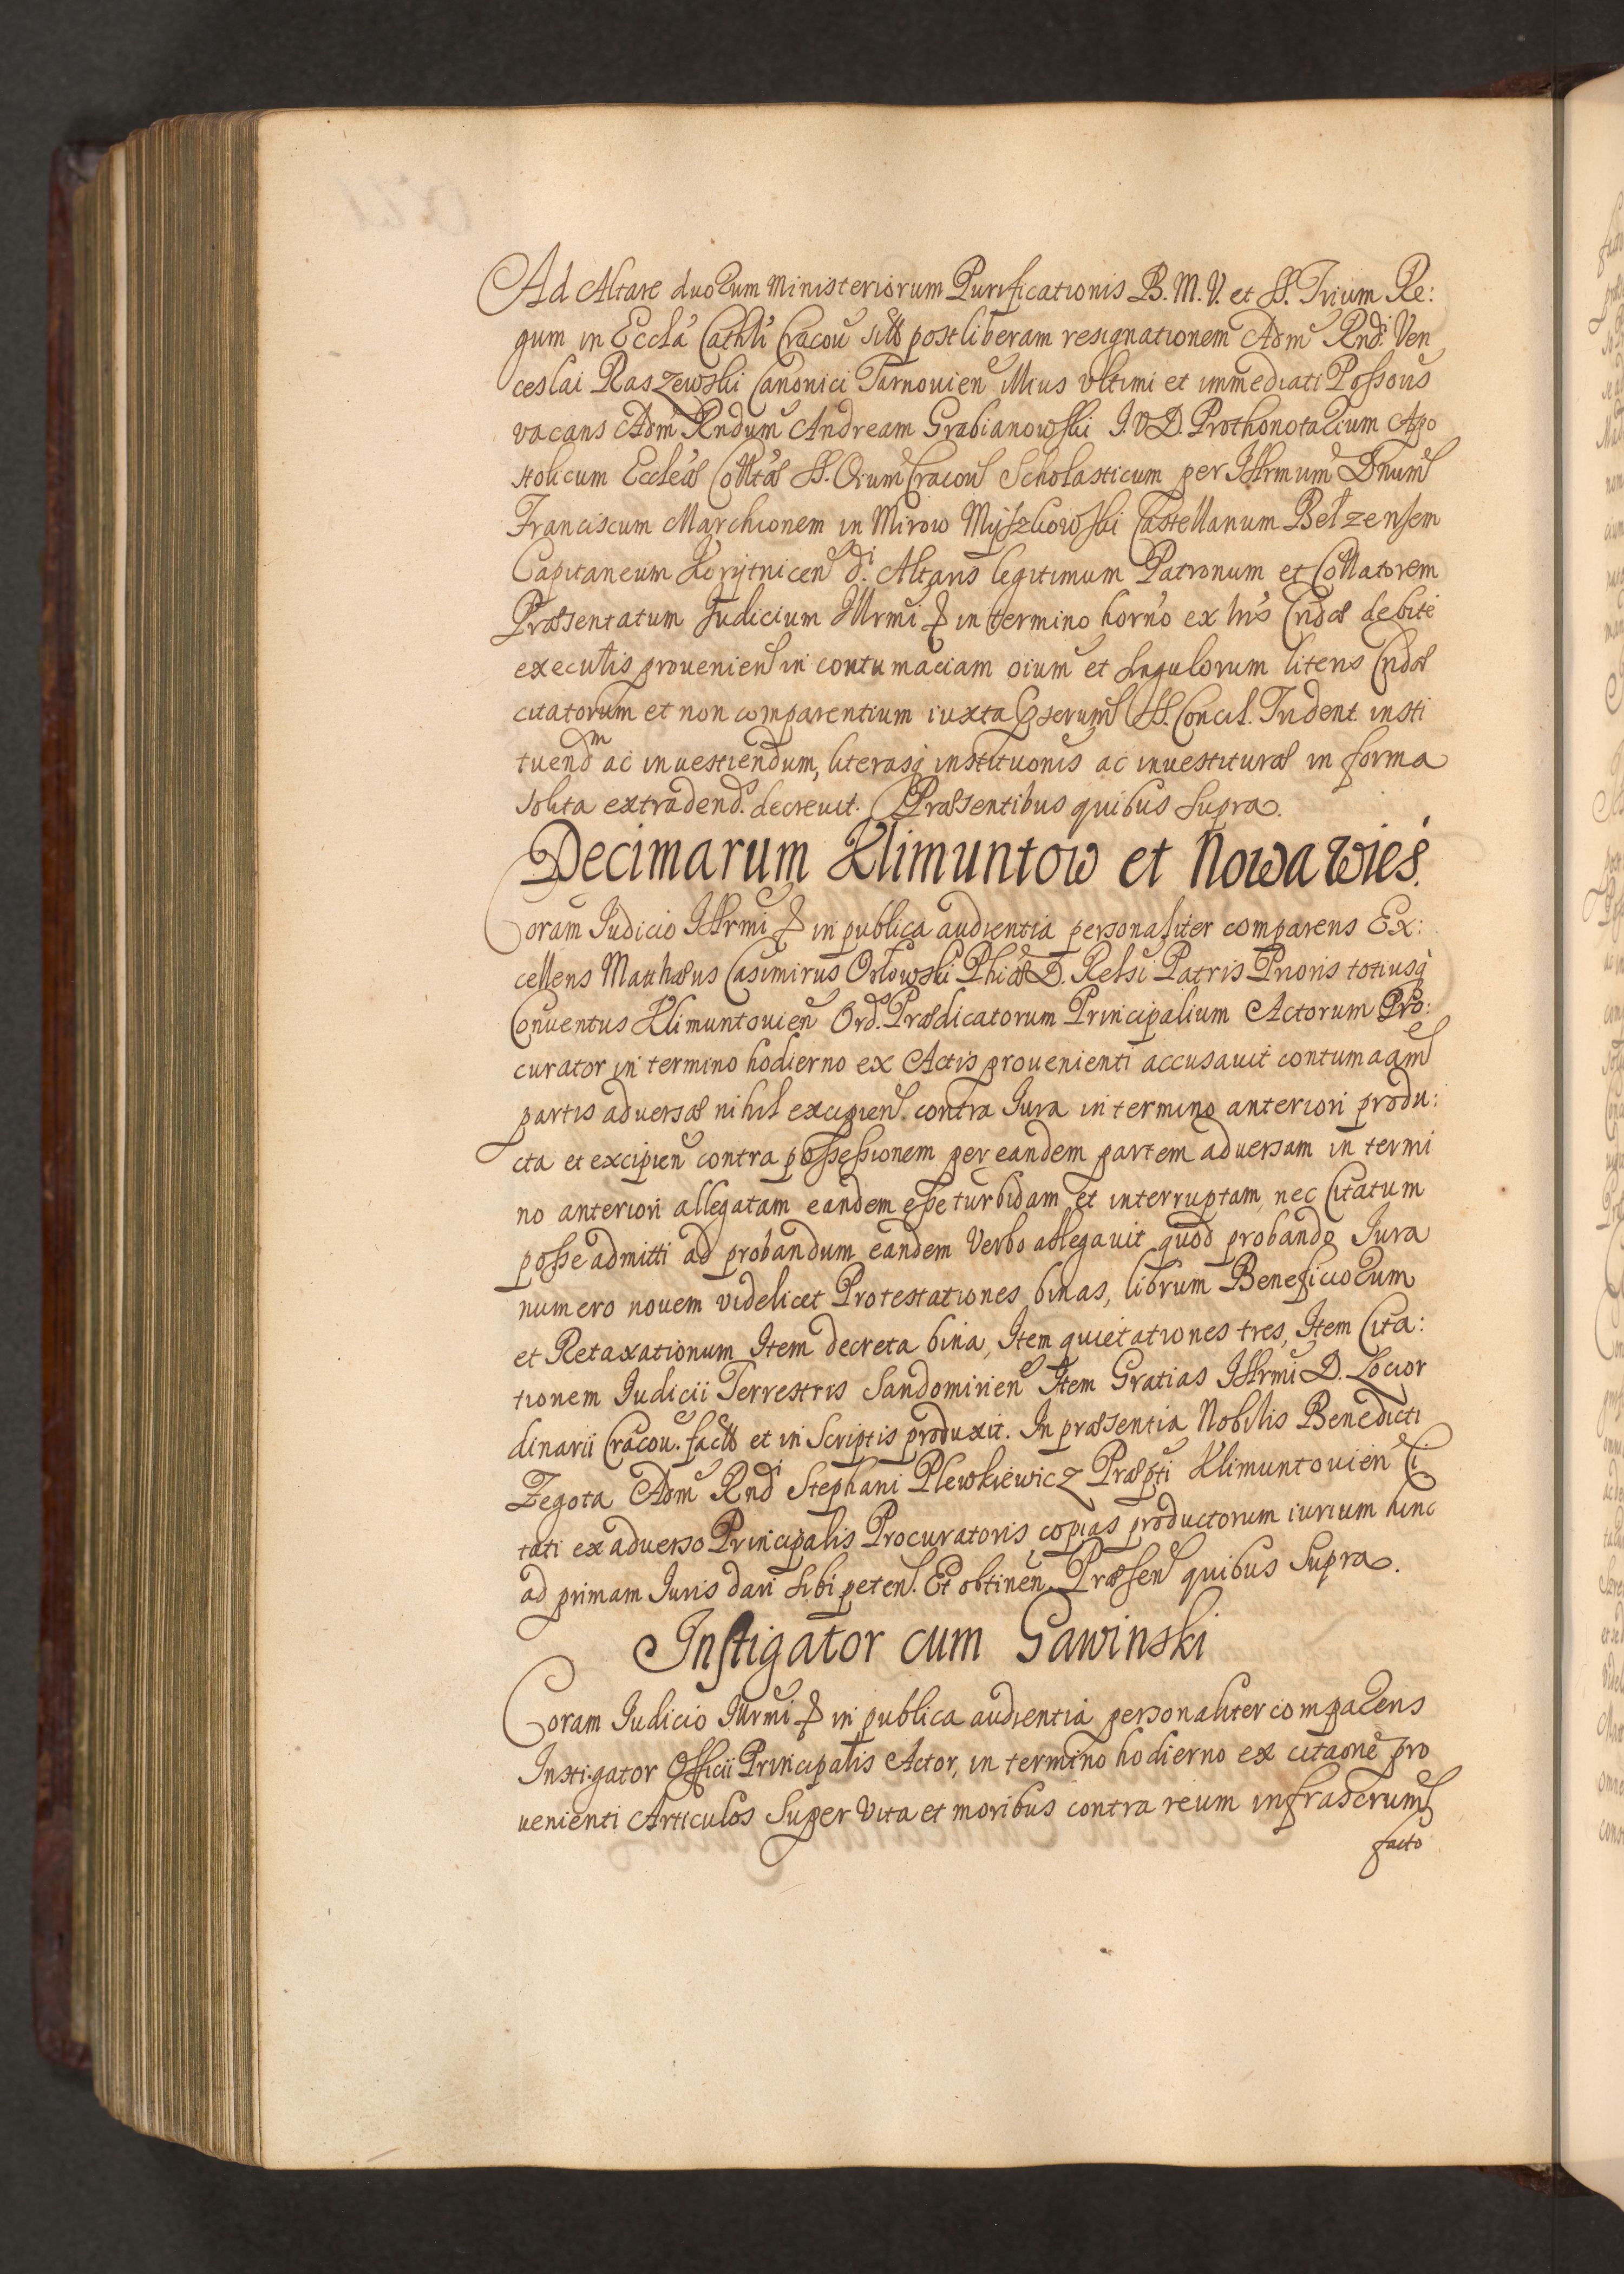 Ad Altare duorum Ministeriorum Purificationis B. M. V. et SS. Trium Re:
gum in Eccla Cathli Cracou situ post liberam resignationem Adm Rndi Ven
ceslai Raszewski Canonici Tarnouien illius ultimi et immediati Possoris
vacans Adm Rndum Andream Grabianowski I. V. D. Prothonotarium Apo
stolicum Eccleæ Colltæ SS. Oium Cracou Scholasticum per Illrmum Dnum
Franciscum Marchionem in Mirow Myszkowski Castellanum Belzensem
Capitaneum Korytnicen d.i Altaris legitimum Patronum et Collatorem
Præsentatum Judicium Illrmi in termino horno ex lris Cridæ debite
executis prouenien in contumaciam oium et singulorum literis Cridæ
citatorum et non comparentium iuxta SS. Concil. Trident. insti
tuendm ac inuestiendum, literasq institutionis ac inuestituræ in forma
solita extradend. decreuit. Præsentibus quibus supra.
Decimarum Klimuntow et Nowawieś.
Coram Judicio Illrmi in publica audientia personaliter comparens Ex:
cellens Matthæus Casimirus Orłowski Phiæ D. Relsi Patris Prioris totiusq
Conuentus Klimuntouien Ord. Prædicatorum Principalium Actorum Pro:
curator in termino hodierno ex Actis prouenienti accusauit contumaciam
partis aduersæ nihil excipien. contra Iura in termino anteriori produ:
cta et excipien contra possessionem per eandem partem aduersam in termi
no anteriori allegatam eandem esse turbidam et interruptam, nec Citatum
posse admitti ad probandum eandem Verbo allegauit quod probando Iura
numero nouem videlicet Protestationes binas, librum Beneficiorum
et Retaxationum Item decreta bina, Item quietationes tres, Item Cita:
tionem Iudicii Terrestris Sandomirien Item Gratias Illrmi D. Locior
dinarii Cracou. facto et in Scriptis produxit. In præsentia Nobilis Benedicti
Zegota Adm Rndi Stephani Plewkiewicz Præpti Klimuntouien Ci
tati ex aduerso Principalis Procuratoris copias productorum iurium hinc
ad primam Iuris dari sibi peten. Et obtinen. Præsen quibus supra.
Instigator cum Gawinski
Coram Iudicio Illrmi in publica audientia personaliter comparens
Instigator Officii Principalis Actor, in termino hodierno ex citaone pro
uenienti Articulos super Vita et moribus contra reum infrascrum
facto